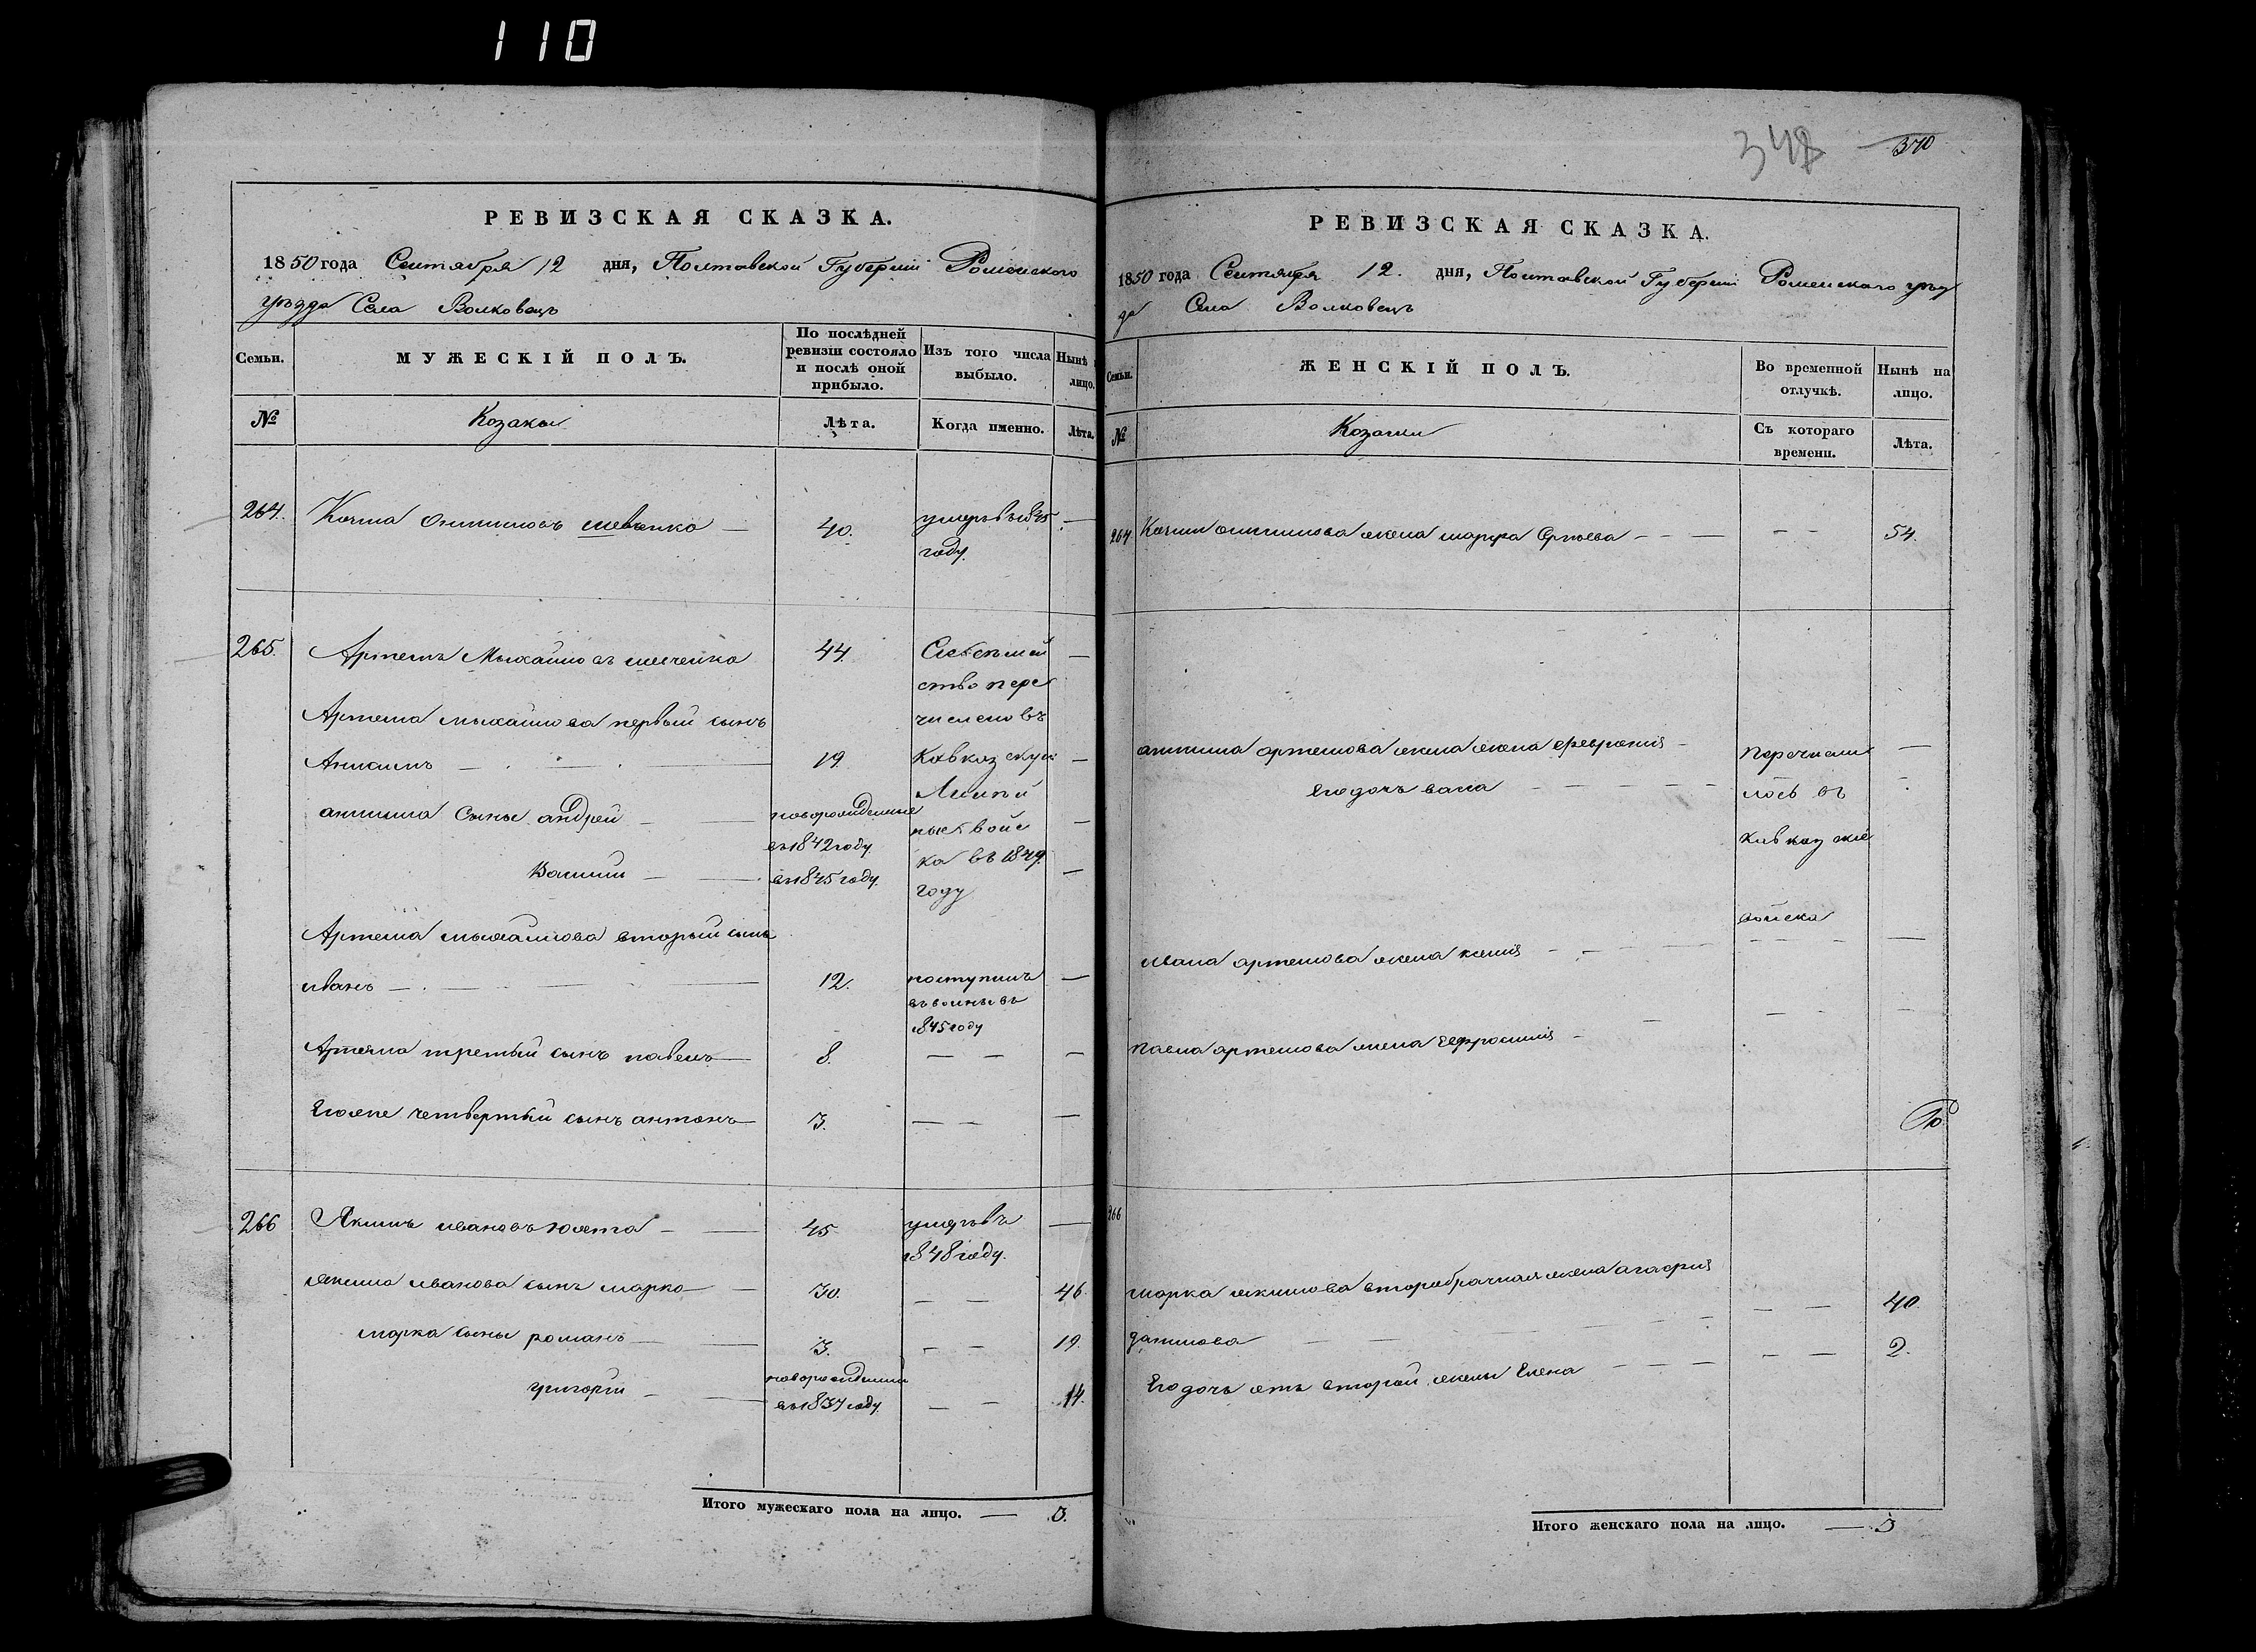 110
348 370
РЕВИЗСКАЯ СКАЗКА.
1850 года Сентября 12 дня, Полтавской Губерніи Роменского
уезда Села Волковецъ
Семьи. МУЖЕСКІЙ ПОЛЪ. По послѣдней ревизіи состояло и послѣ оной прибыло. Изъ того числа выбыло. Нынѣ лицо.
№ Козаки Лѣта. Когда именно. Лѣта.
264. Козма Онисимовъ 40. умеръ въ 1845 —
году.
265. Артемъ Михайловъ 44. —
ство пере
Артема михайлова первый сынъ числено въ
19. Кавказскую —
Линѣй
Сыны андрей — новорожденные ные войс —
въ 1842 году.
ка въ 1849
Василий — въ 1845 году. —
году
Артема михайлова вторый сынъ
иванъ — 12. поступилъ —
въ
1845 году
Артема третый сынъ павелъ — 8. — — —
Егоже четвертый сынъ антонъ — 3. — — —
266 Якимъ ивановъ 45 умеръ въ —
1848 году.
якима иванова сынъ марко — 30. — — 46.
марка сыны романъ — 3. — — 19.
григорій — новорожденный
въ 1837 году. — — 14.
Итого мужескаго пола на лицо. — 3.
РЕВИЗСКАЯ СКАЗКА.
1850 года Сентября 12. дня, Полтавской Губерніи Роменскаго уез
да Села Волковецъ
Семьи. ЖЕНСКІЙ ПОЛЪ. Во временной отлучкѣ. Нынѣ на лицо.
№ Козачки Съ котораго времени. Лѣта.
264 Козмы онисимова жена марфа — — — — — 54.
артемова жена феврониія — Перечисли —
Его дочь — — — лось въ
Кавказкіе
войска
ивана артемова жена ксенія — — — — —
павла артемова жена Ефросинія —
266
марка якимова второбрачная жена агафия
данилова — — — — 40.
Его дочь отъ второй жены Елена — — — — — 2.
Итого женскаго пола на лицо. — 3